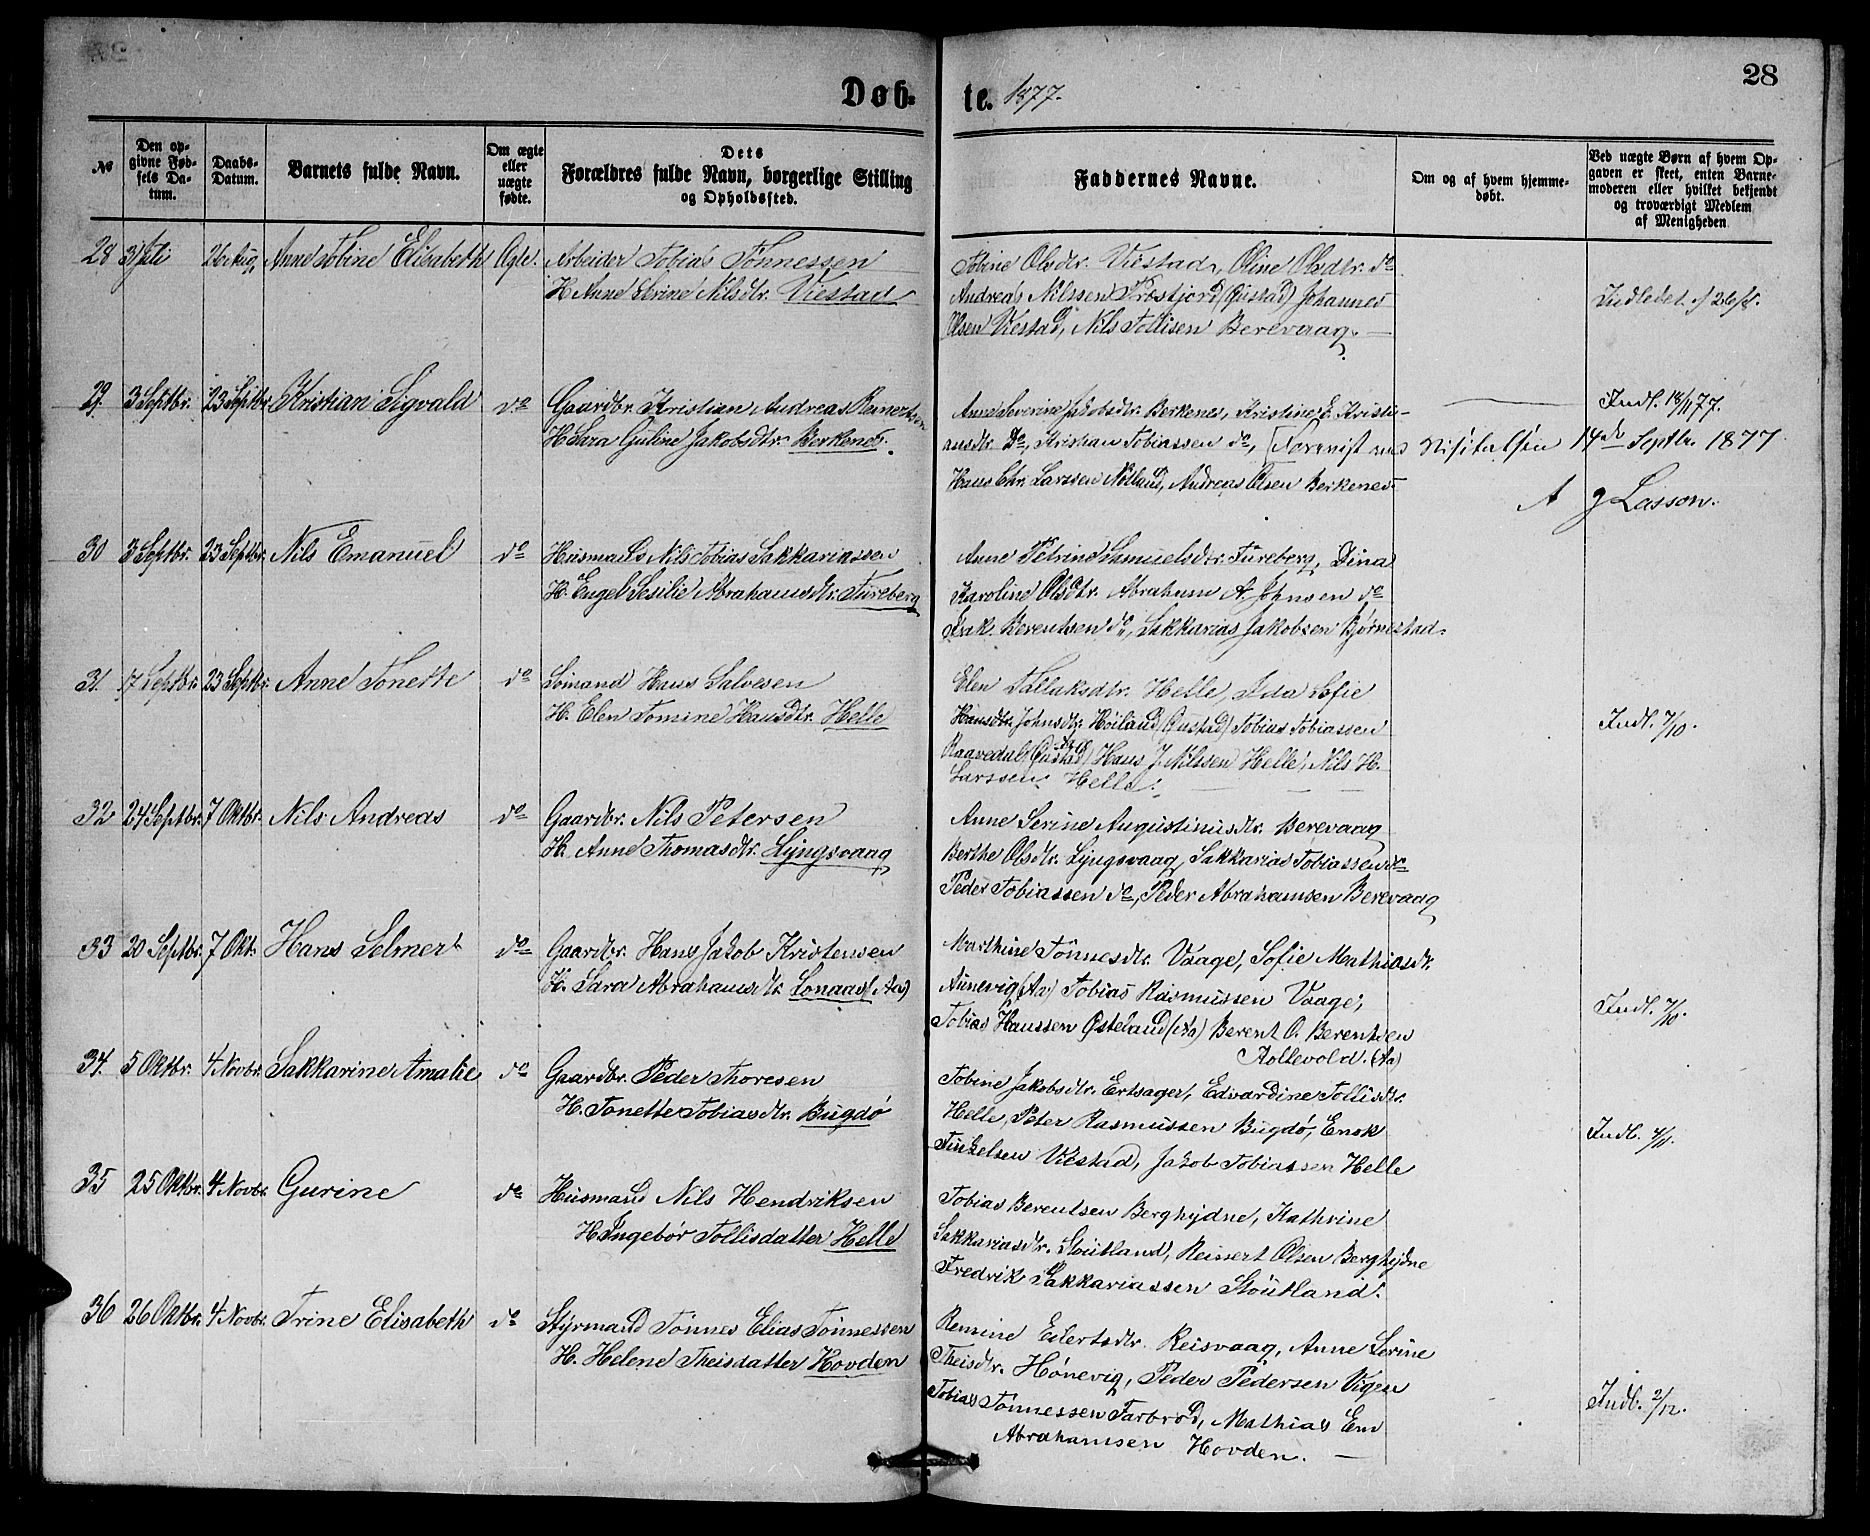 28
Døb-te. 1877.
№
Den opgivne Fødsels Datum.
Daabs-Datum.
Barnets fulde Navn.
Om ægte eller uægte fødte.
Dets Forældres fulde Navn, borgerlige Stilling og Opholdssted.
Faddernes Navne.
Om og af hvem hjemmedøbt.
Ved uægte Børn af hvem Opgaven er skeet, enten Barnemoderen eller hvilket bekjendt og troværdigt Medlem af Menigheden
28 31 Juli 26 Aug. Anne Tobine Elisabeth Ægte. Arbeider Tobias Tønnessen
H. Anne Serine Nilsdtr. Viestad
Tobine Olsdtr. Viestad, Oline Olsdtr. do
Andreas Nilssen Prestjord (Qustad) Johannes
Olsen Viestad, Nils Tollisen Berevaag. —
Indledet 26/8.
29. 3 Septbr. 23 Septbr. Kristian Sigvald do Gaardbr. Kristian Andreas Reinertsen
H. Sara Guline Jakobsdtr. Berkenes.
Anne Severine Jakobsdtr. Berkenes, Kristine E. Kristi-
ansdtr. Do, Kristian Tobiassen do, [Forevist ved Visitatsen 14de Septbr. 1877.
Hans Chr. Larssen Nøtland, Andreas Olsen Berkenes.
Indl. 18/11 77.
J Lasson.
30 3 Septbr. 23 Septbr. Nils Emanuel do Husmands Nils Tobias Sakkariassen
H. Engel Sesilie Abrahamsdtr. Fureberg
Anne Petrine Samuelsdtr. Fureberg, Dina
Karoline Olsdtr. Abraham A. Johnsen do
Isak Berentsen do, Sakkarias Jakobsen Bjørnestad.
31. 17 Septbr. 23 Septbr. Anne Tonette do Loimand Hans Salvesen
H. Elen Tomine Hansdtr. Helle
Elen Tallaksdtr. Helle, Ida Sofie
Hansdtr. Johnsdtr. Hoiland (Qustad) Tobias Tobiassen
Raavedal (Qustad) Hans J. Nilssen Helle, Nils H.
Larssen Helle.
Indl. 7/10.
32 24 Septbr. 7 Oktbr. Nils Andreas do Gaardbr. Nils Petersen
H. Anne Thomasdtr. Lyngsvaag
Anne Serine Augustinusdtr. Berevaag
Berthe Olsdtr. Lyngsvaag, Sakkarias Tobiassen do
Peder Tobiassen do, Peder Abrahamsen Berevaag
33 20 Septbr. 7 Okt. Hans Selmer do Gaardbr. Hans Jakob Kristensen
H. Sara Abrahamsdtr. Lonaas (Aa)
Marthine Tønnesdtr. Vaage, Sofie Mathiasdtr.
Aunevig (Aa) Tobias Rasmussen Vaage,
Tobias Hanssen Østeland (Aa) Berent O. Berentsen
Aollevold. (Aa)
Indl. 7/10.
34. 5 Oktbr. 4 Novbr. Sakkarine Amalie do Gaardbr. Peder Thoresen
H. Tonette Tobiasdtr. Bugdø
Tobine Jakobsdtr. Ertsager, Edvardine Tollisdtr.
Helle, Peter Rasmussen Bugdø, Enok
Tinkelsen Viestad, Jakob Tobiassen Helle
Indl. 4/11.
35 25 Oktbr. 4 Novbr. Gurine do Husmand Nils Hendriksen
H. Ingebør Tollisdatter Helle
Tobias Berentsen Berghydne, Kathrine
Sakkariasdtr. Stoutland, Reinert Olsen Berghydne
Fredrik Sakkariassen Stoutland.
36 26 Oktbr. 4 Novbr. Trine Elisabeth do Styrmand Tønnes Elias Tønnessen
H. Helene Theisdatter Hovden
Remine Eilertsdtr. Reisvaag, Anne Serine
Theisdtr. Hønevig, Peder Pedersen Vigen
Tobias Tønnessen Farbrød, Mathias Em
Abrahamsen Hovden. —
Indl. 2/12.